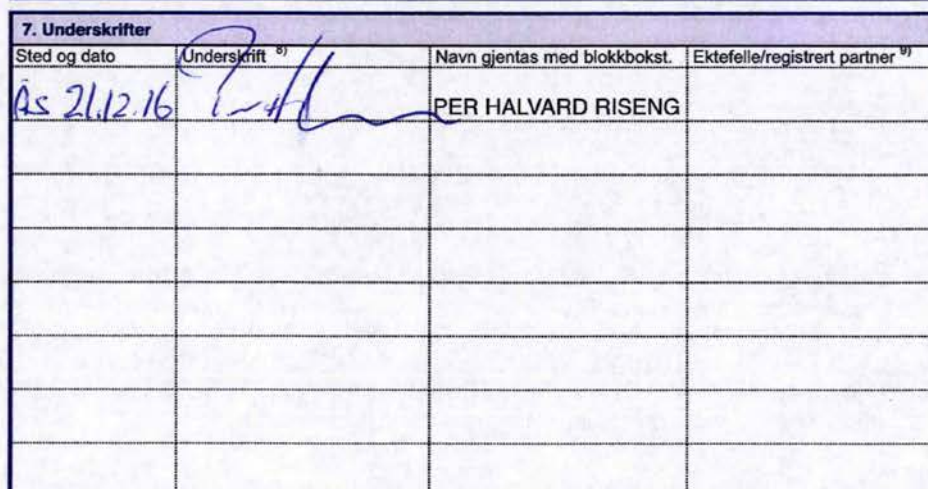 7. Underskrifter
Sted og dato Underskrift 8) Navn gjentas med blokkbokst. Ektefelle/registrert partner 9)
Ås 21.12.16 PER HALVARD RISENG